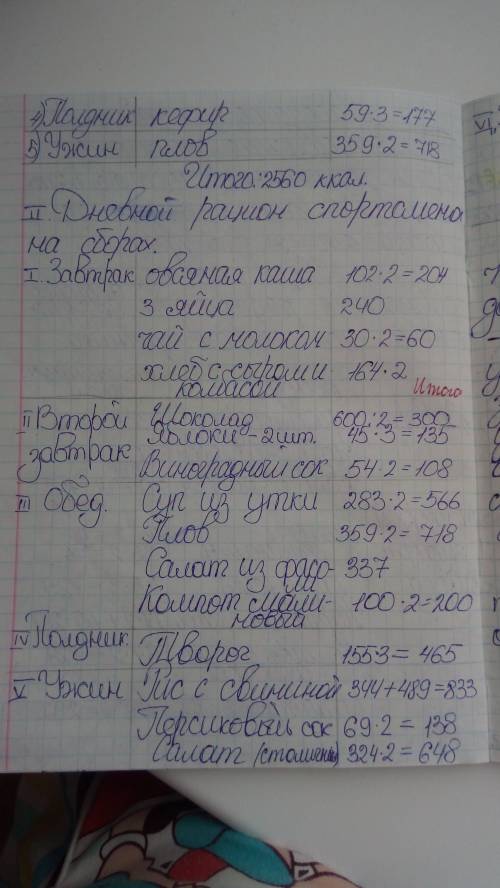 4) Полдник кефир 59·3=177
5) Ужин плов 359·2=718
Итого: 2560 ккал.
II. Дневной рацион спортсмена
на сборах.
I. Завтрак овсяная каша 102·2=204
3 яйца 240
чай с молоком 30·2=60
хлеб с сыром и 164·2
колбасой Итого
II Второй Шоколад 600:2=300
Яблоки - 2 шт. 45·3=135
завтрак Виноградный сок 54·2=108
III Обед. Суп из утки 283·2=566
Плов 359·2=718
Салат из фасо- 337
ли
Компот мали- 100·2=200
новый
IV Полдник. Творог 1553=465
V Ужин Рис с свининой 344+489=833
Персиковый сок 69·2=138
Салат 324·2=648
VI,